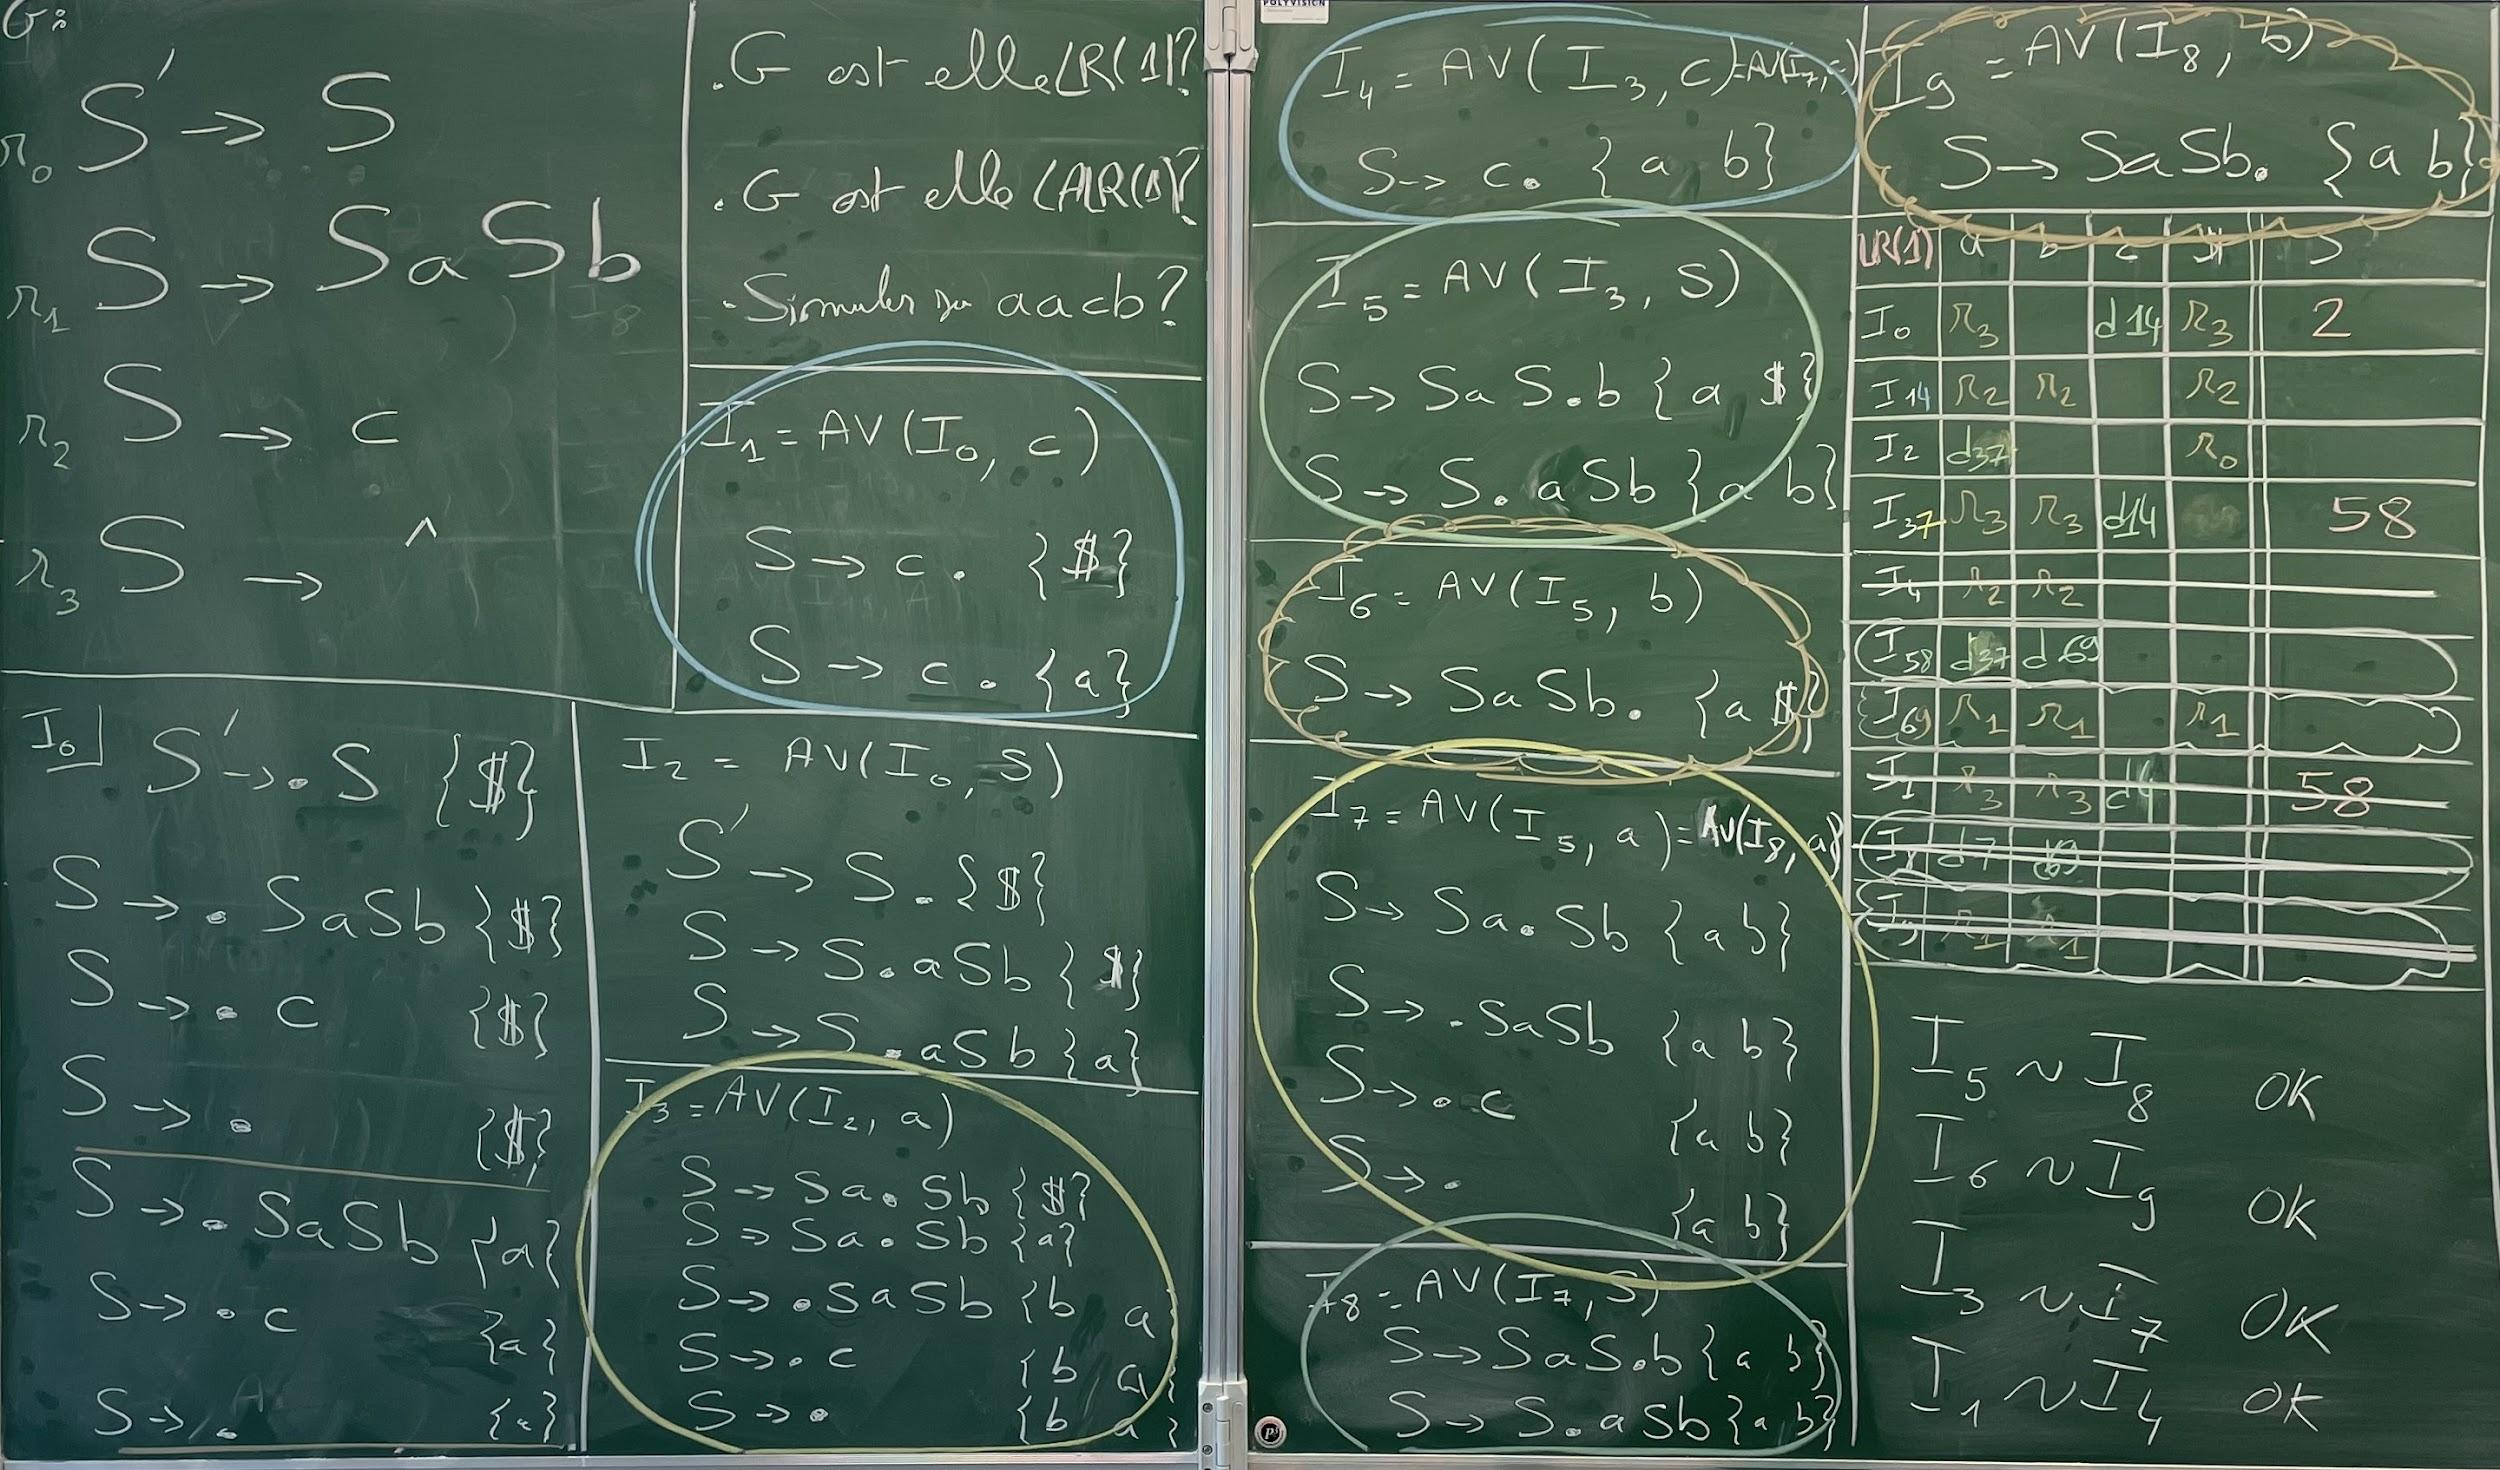 G:
r0 S' → S
r1 S → SaSb
r2 S → c
r3 S → ^
.G est elle LR(1)?
.G est elle LALR(1)?
.Simuler sur aacb?
I1 = AV(I0, c)
S → c. {$}
S → c. {a}
I0
S' → .S {$}
S → .SaSb {$}
S → .c {$}
S → . {$}
S → .SaSb {a}
S → .c {a}
S → . {a}
I2 = AV(I0, S)
S' → S. {$}
S → S.aSb {$}
S → S.aSb {a}
I3 = AV(I2, a)
S → Sa.Sb {$}
S → Sa.Sb {a}
S → .SaSb {b a
S → .c {b a}
S → . {b a}
POLYVISION
I4 = AV(I3, c) = AV(I7, c)
S → c. {a b}
I5 = AV(I3, S)
S → SaS.b {a $}
S → S.aSb {a b}
I6 = AV(I5, b)
S → SaSb. {a $}
I7 = AV(I5, a) = AV(I8, a)
S → Sa.Sb {a b}
S → .SaSb {a b}
S → .c {a b}
S → . {a b}
I8 = AV(I7, S)
S → SaS.b {a b}
S → S.aSb {a b}
I9 = AV(I8, b)
S → SaSb. {a b}
LR(1) a b c $ S
I0 r3 d14 r3 2
I14 r2 r2 r2
I2 d37 r0
I37 r3 r3 d14 58
I4 r2 r2
I58 d37 d69
I69 r1 r1 r1
r3 r3 d4 58
I8 d7 d9
I9 r1 r1
I5 ~ I8 OK
I6 ~ I9 OK
I3 ~ I7 OK
I1 ~ I4 OK